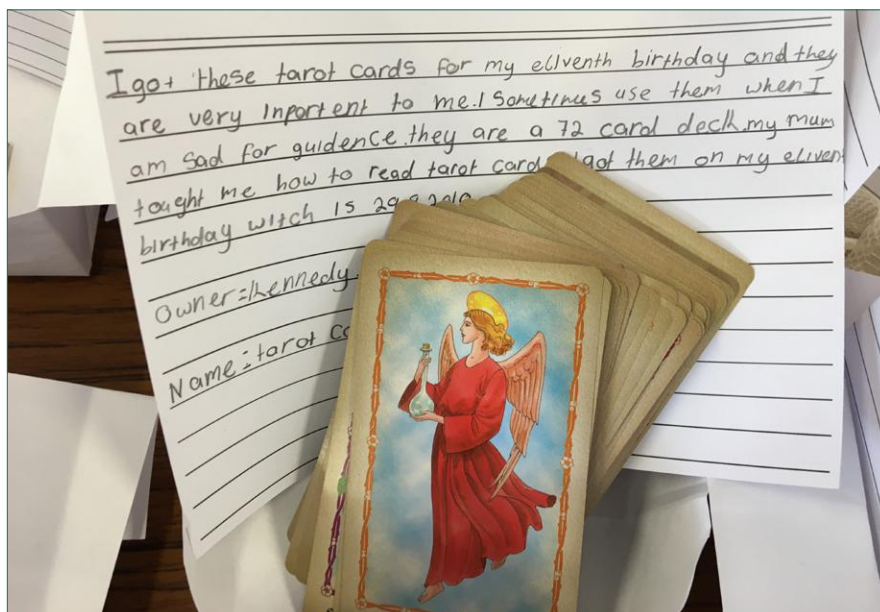 I got these tarot cards for my ellventh birthday and they
are very inportent to me. I sometimes use them when I
am sad for guidence. they are a 72 card deck. my mum
tought me how to read tarot card got them on my eliven
birthday witch is
Owner = Kennedy
Name = tarot